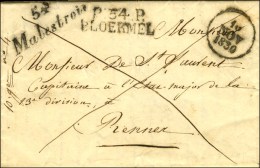 54
Malestroit
P.54.P.
PLOERMEL
1830
Monsieur
Monsieur De St Laurent
Capitaine à l'Etat major de la
13e division, à
Rennes